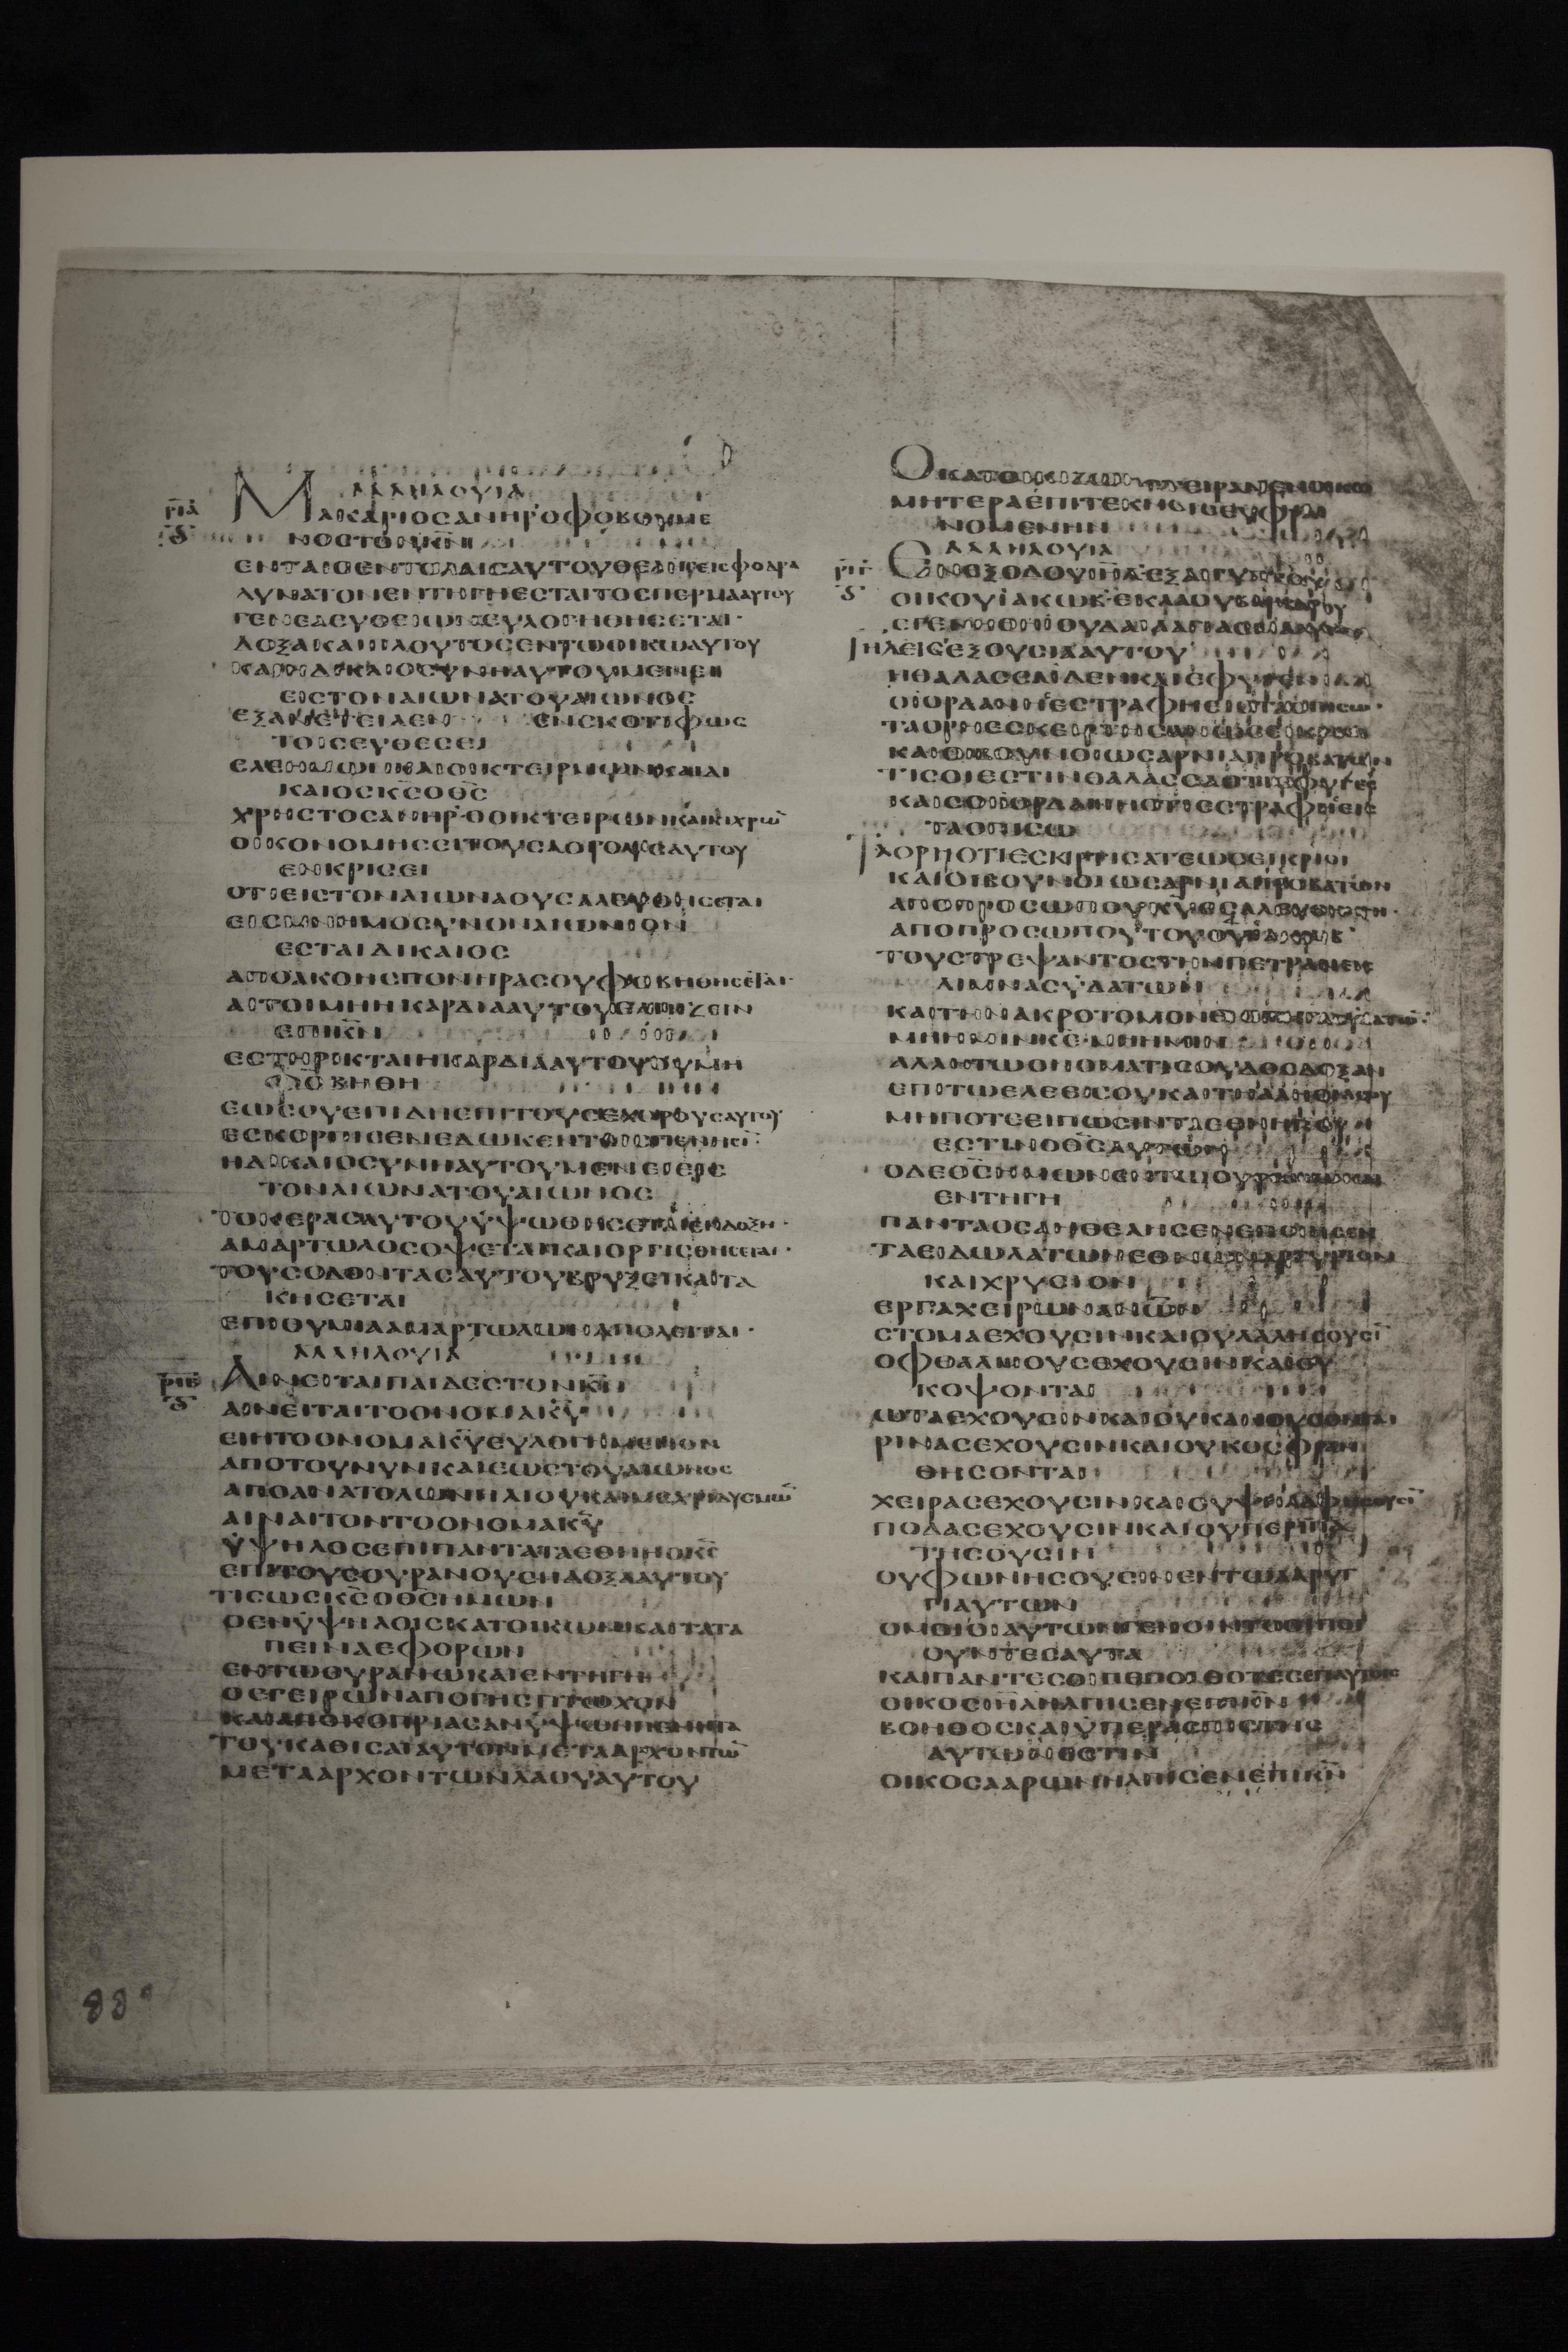 ΑΛΛΗΛΟΥΙΑ
ΡΙΑ ΜΑΚΑΡΙΟСΑΝΗΡΟΦΟΒΟΥΜΕ
ΝΟСΤΟΝΚΝ
ΕΝΤΑΙСΕΝΤΟΛΑΙСΑΥΤΟΥΘΕΛΗСΕΙСΦΟΔΡΑ
ΔΥΝΑΤΟΝΕΝΤΗΓΗΕСΤΑΙΤΟСΠΕΡΜΑΑΥΤΟΥ
ΓΕΝΕΑΕΥΘΕΩΝΕΥΛΟΓΗΘΗСΕΤΑΙ·
ΔΟΞΑΚΑΙΠΛΟΥΤΟСΕΝΤΩΟΙΚΩΑΥΤΟΥ
ΚΑΙΗΔΙΚΑΙΟСΥΝΗΑΥΤΟΥΜΕΝΕΙ
ΕΙСΤΟΝΑΙΩΝΑΤΟΥΑΙΩΝΟС
ΕΞΑΝΕΤΕΙΛΕΝ ΕΝСΚΟΤΙΦΩС
ΤΟΙСΕΥΘΕСΕΙ
ΕΛΕΗΜΩΝΚΑΙΟΙΚΤΕΙΡΜΩΝΚΑΙΔΙ
ΚΑΙΟСΚСΟΘС
ΧΡΗСΤΟСΑΝΗΡ·ΟΟΙΚΤΕΙΡΩΝΚΑΙΚΙΧΡΩ̅
ΟΙΚΟΝΟΜΗСΕΙΤΟΥСΛΟΓΟΥСΑΥΤΟΥ
ΕΝΚΡΙСΕΙ
ΟΤΙΕΙСΤΟΝΑΙΩΝΑΟΥСΑΛΕΥΘΗСΕΤΑΙ
ΕΙСΜΝΗΜΟСΥΝΟΝΑΙΩΝΙΟΝ
ΕСΤΑΙΔΙΚΑΙΟС
ΑΠΟΑΚΟΗСΠΟΝΗΡΑСΟΥΦΟΒΗΘΗСΕΤΑΙ·
ΕΤΟΙΜΗΗΚΑΡΔΙΑΑΥΤΟΥΕΛΠΙΖΕΙΝ
ΕΠΙΚΝ
ΕСΤΗΡΙΚΤΑΙΗΚΑΡΔΙΑΑΥΤΟΥΟΥΜΗ
ΦΟΒΗΘΗ
ΕΩСΟΥΕΠΙΔΗΕΠΙΤΟΥСΕΧΘΡΟΥСΑΥΤΟΥ
ΕСΚΟΡΠΙСΕΝΕΔΩΚΕΝΤΟΙСΠΕΝΗСΙ̅:
ΗΔΙΚΑΙΟСΥΝΗΑΥΤΟΥΜΕΝΕΙΕΙС
ΤΟΝΑΙΩΝΑΤΟΥΑΙΩΝΟС
ΤΟΚΕΡΑСΑΥΤΟΥΥΨΩΘΗСΕΤΑΙΕΝΔΟΞΗ·
ΑΜΑΡΤΩΛΟСΟΨΕΤΑΙΚΑΙΟΡΓΙСΘΗСΕΤΑΙ·
ΤΟΥСΟΔΟΝΤΑСΑΥΤΟΥΒΡΥΞΕΙΚΑΙΤΑ
ΚΗСΕΤΑΙ
ΕΠΙΘΥΜΙΑΑΜΑΡΤΩΛΩΝΑΠΟΛΕΙΤΑΙ·
ΑΛΛΗΛΟΥΙΑ
ΡΙΒ ΑΙΝΕΙΤΑΙΠΑΙΔΕСΤΟΝΚΝ
ΑΙΝΕΙΤΑΙΤΟΟΝΟΜΑΚΥ
ΕΙΗΤΟΟΝΟΜΑΚΥΕΥΛΟΓΗΜΕΝΟΝ
ΑΠΟΤΟΥΝΥΝΚΑΙΕΩСΤΟΥΑΙΩΝΟС
ΑΠΟΑΝΑΤΟΛΩΝΗΛΙΟΥΚΑΙΜΕΧΡΙΔΥСΜΩ̅
ΑΙΝΑΙΤΟΝΤΟΟΝΟΜΑΚΥ
ΥΨΗΛΟСΕΠΙΠΑΝΤΑΤΑΕΘΝΗΟΚС
ΕΠΙΤΟΥСΟΥΡΑΝΟΥСΗΔΟΞΑΑΥΤΟΥ
ΤΙСΩСΚСΟΘСΗΜΩΝ
ΟΕΝΥΨΗΛΟΙСΚΑΤΟΙΚΩΝΚΑΙΤΑΤΑ
ΠΕΙΝΑΕΦΟΡΩΝ
ΕΝΤΩΟΥΡΑΝΩΚΑΙΕΝΤΗΓΗ
ΟΕΓΕΙΡΩΝΑΠΟΓΗСΠΤΩΧΟΝ
ΚΑΙΑΠΟΚΟΠΡΙΑСΑΝΥΨΩΝΠΕΝΗΤΑ
ΤΟΥΚΑΘΙСΑΙΑΥΤΟΝΜΕΤΑΑΡΧΟΝΤΩ̅
ΜΕΤΑΑΡΧΟΝΤΩΝΛΑΟΥΑΥΤΟΥ
ΟΚΑΤΟΙΚΙΖΩΝСΤΕΙΡΑΝΕΝΟΙΚΩ
ΜΗΤΕΡΑΕΠΙΤΕΚΝΟΙСΕΥΦΡΑΙ
ΝΟΜΕΝΗΝ
ΑΛΛΗΛΟΥΙΑ
ΡΙΓ ΕΝΕΞΟΔΩΙΗΛΕΞΑΙΓΥΠΤΟΥ
ΟΙΚΟΥΙΑΚΩΒΕΚΛΑΟΥΒΑΡΒΑΡΟΥ
ΕΓΕΝΗΘΗΙΟΥΔΑΙΑΑΓΙΑСΜΑΑΥΤΟΥ
ΙΗΛΕΙСΕΞΟΥСΙΑΑΥΤΟΥ
ΗΘΑΛΑССΑΙΔΕΝΚΑΙΕΦΥΓΕΝ
ΟΙΟΡΔΑΝΗСΕСΤΡΑΦΗΕΙСΤΑΟΠΙСΩ·
ΤΑΟΡΗΕСΚΙΡΤΗСΑΝΩСΕΙΚΡΙΟΙ
ΚΑΙΟΙΒΟΥΝΟΙΩСΑΡΝΙΑΠΡΟΒΑΤΩΝ
ΤΙСΟΙΕСΤΙΝΘΑΛΑССΑΟΤΙΕΦΥΓΕС
ΚΑΙСΟΙΙΟΡΔΑΝΗΟΤΙΕСΤΡΑΦΗСΕΙС
ΤΑΟΠΙСΩ
ΤΑΟΡΗΟΤΙΕСΚΙΡΤΗСΑΤΕΩСΕΙΚΡΙΟΙ
ΚΑΙΟΙΒΟΥΝΟΙΩСΑΡΝΙΑΠΡΟΒΑΤΩΝ
ΑΠΟΠΡΟСΩΠΟΥΚΥΕСΑΛΕΥΘΗΗΓΗ·
ΑΠΟΠΡΟСΩΠΟΥΤΟΥΘΥΙΑΚΩΒ
ΤΟΥСΤΡΕΨΑΝΤΟСΤΗΝΠΕΤΡΑΝΕΙС
ΛΙΜΝΑСΥΔΑΤΩΝ
ΚΑΙΤΗΝΑΚΡΟΤΟΜΟΝΕΙСΠΗΓΑСΥΔΑΤΩ̅
ΜΗΗΜΙΝΚΕΜΗΗΜΙΝ
ΑΛΛΗΤΩΟΝΟΜΑΤΙСΟΥΔΟСΔΟΞΑΝ
ΕΠΙΤΩΕΛΕΕΙСΟΥΚΑΙΤΗΑΛΗΘΕΙΑСΟΥ
ΜΗΠΟΤΕΕΙΠΩСΙΝΤΑΕΘΝΗΠΟΥ
ΕСΤΙΝΟΘСΑΥΤΩΝ
ΟΔΕΘСΗΜΩΝΕΝΤΩΟΥΡΑΝΩΚΑΙ
ΕΝΤΗΓΗ
ΠΑΝΤΑΟСΑΗΘΕΛΗСΕΝΕΠΟΙΗСΕΝ
ΤΑΕΙΔΩΛΑΤΩΝΕΘΝΩΝΑΡΓΥΡΙΟΝ
ΚΑΙΧΡΥСΙΟΝ
ΕΡΓΑΧΕΙΡΩΝΑΝΩΝ
СΤΟΜΑΕΧΟΥСΙΝΚΑΙΟΥΛΑΛΗСΟΥСΙ̅
ΟΦΘΑΛΜΟΥСΕΧΟΥСΙΝΚΑΙΟΥ
ΚΟΨΟΝΤΑΙ
ΩΤΑΕΧΟΥСΙΝΚΑΙΟΥΚΑΚΟΥСΟΝΤΑΙ
ΡΙΝΑСΕΧΟΥСΙΝΚΑΙΟΥΚΟСΦΡΑΝ
ΘΗСΟΝΤΑΙ
ΧΕΙΡΑСΕΧΟΥСΙΝΚΑΙΟΥΨΗΛΑΦΗСΟΥСΙ̅
ΠΟΔΑСΕΧΟΥСΙΝΚΑΙΟΥΠΕΡΙΠΑ
ΤΗСΟΥСΙΝ
ΟΥΦΩΝΗСΟΥСΙΝΕΝΤΩΛΑΡΥΓ
ΓΙΑΥΤΩΝ
ΟΜΟΙΟΙΑΥΤΩΝΓΕΝΟΙΝΤΟΟΙΠΟΙ
ΟΥΝΤΕСΑΥΤΑ
ΚΑΙΠΑΝΤΕСΟΙΠΕΠΟΙΘΟΤΕСΕΠΑΥΤΟΙС
ΟΙΚΟСΙΗΛΗΛΠΙСΕΝΕΠΙΚΝ
ΒΟΗΘΟСΚΑΙΥΠΕΡΑСΠΙСΤΗС
ΑΥΤΩΝΕСΤΙΝ
ΟΙΚΟСΑΑΡΩΝΗΛΠΙСΕΝΕΠΙΚΝ
88